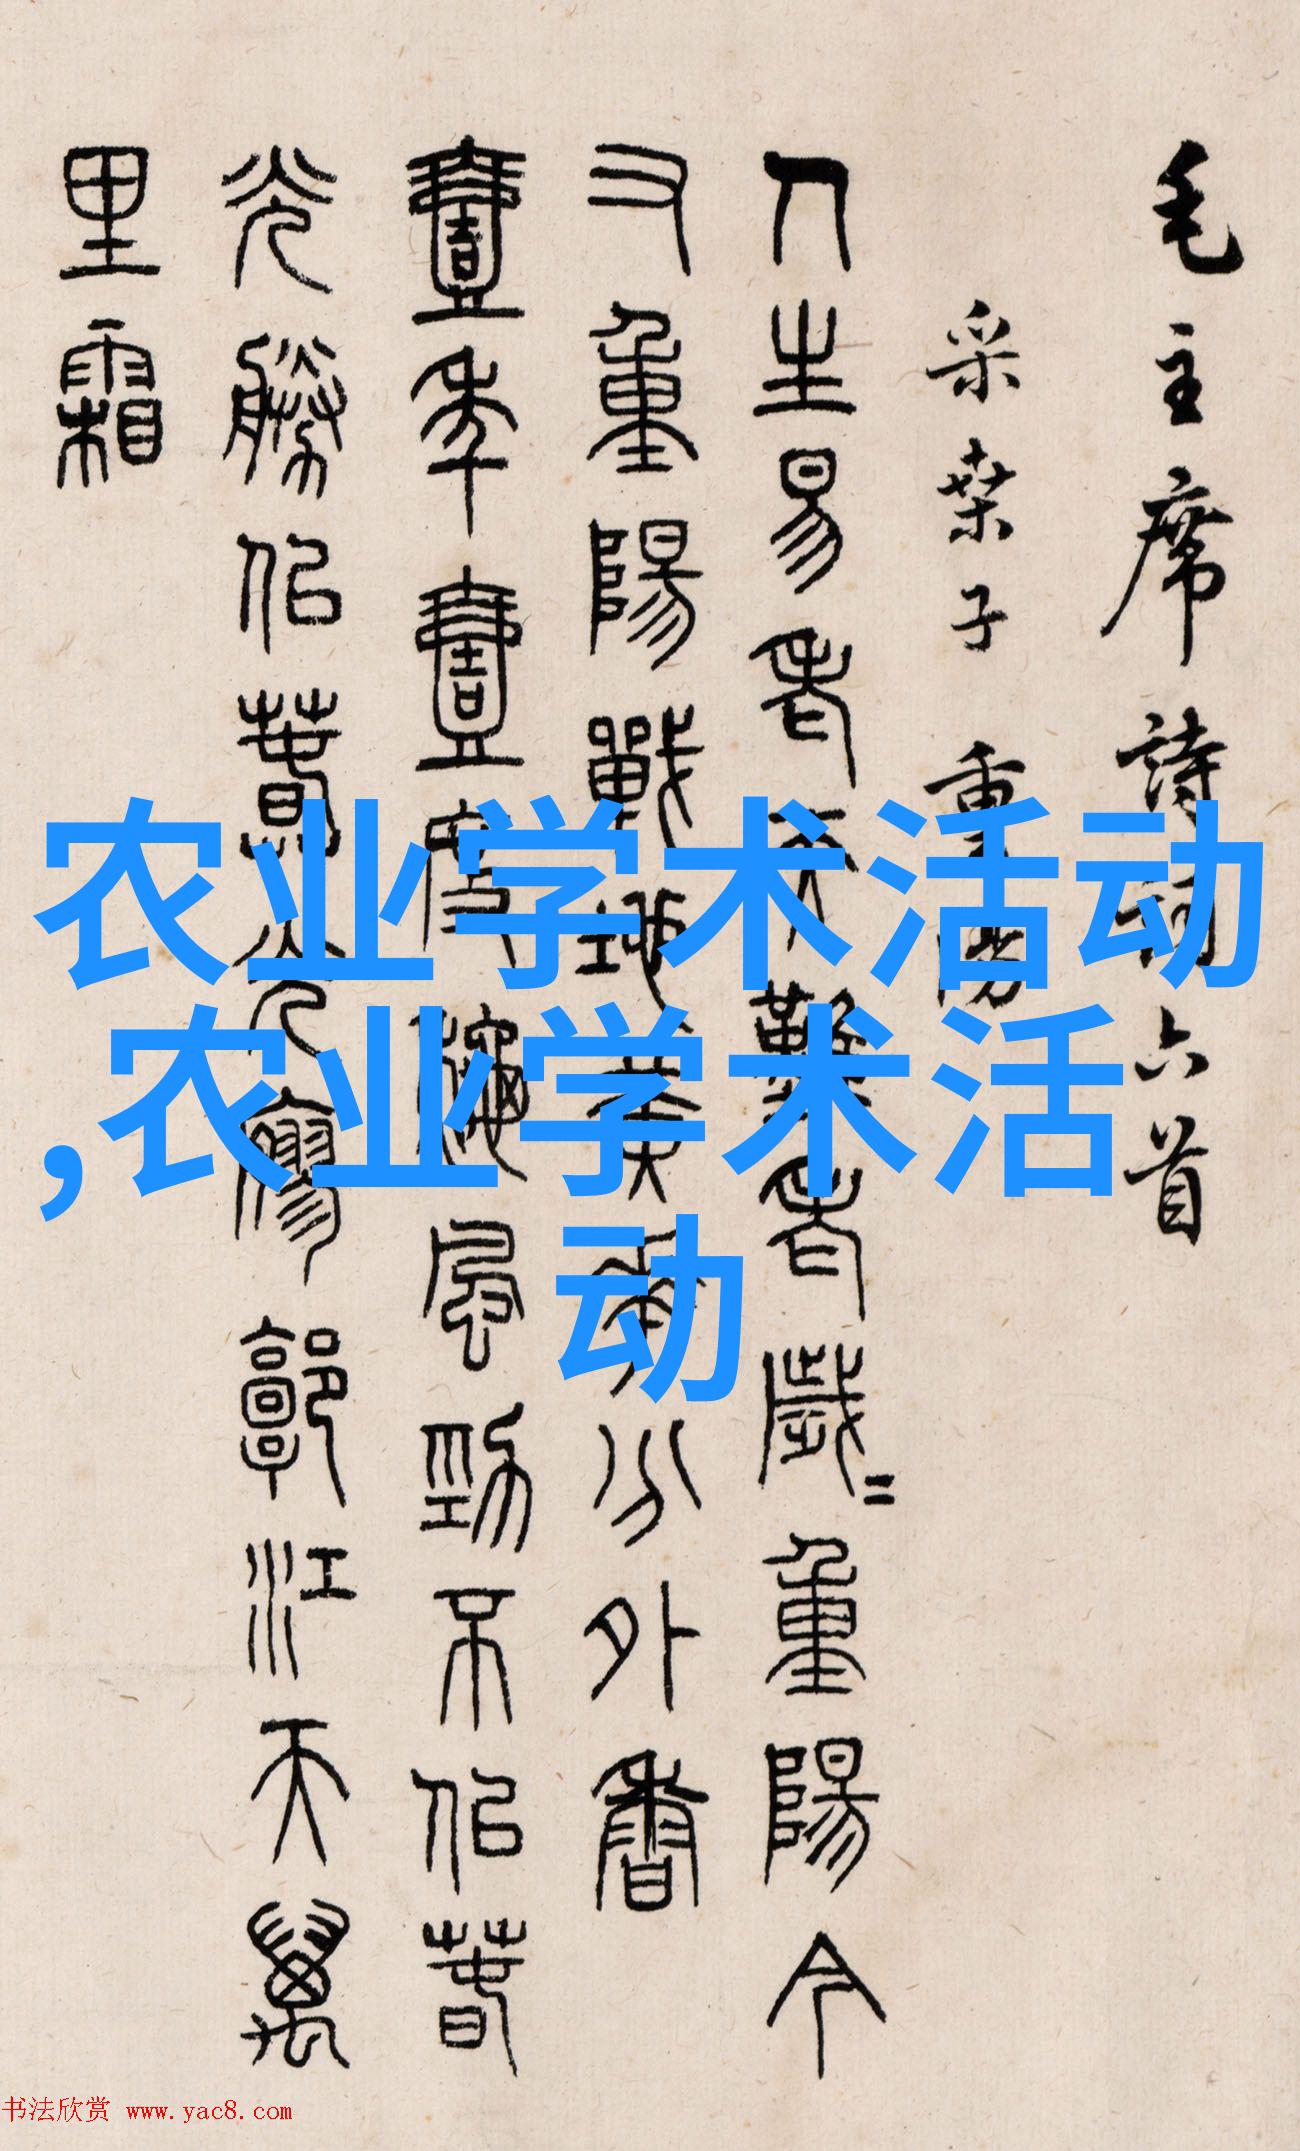 毛主席詩詞六首
采桑子 重陽
人生易老天難老歲〻重陽今
又重陽戰地黃華分外香
壹年壹度秌風勁不佀春
光勝佀春光寥郭江天萬
里霜
农业学术活动
,农业学术活
动
书法欣赏 www.yac8.com